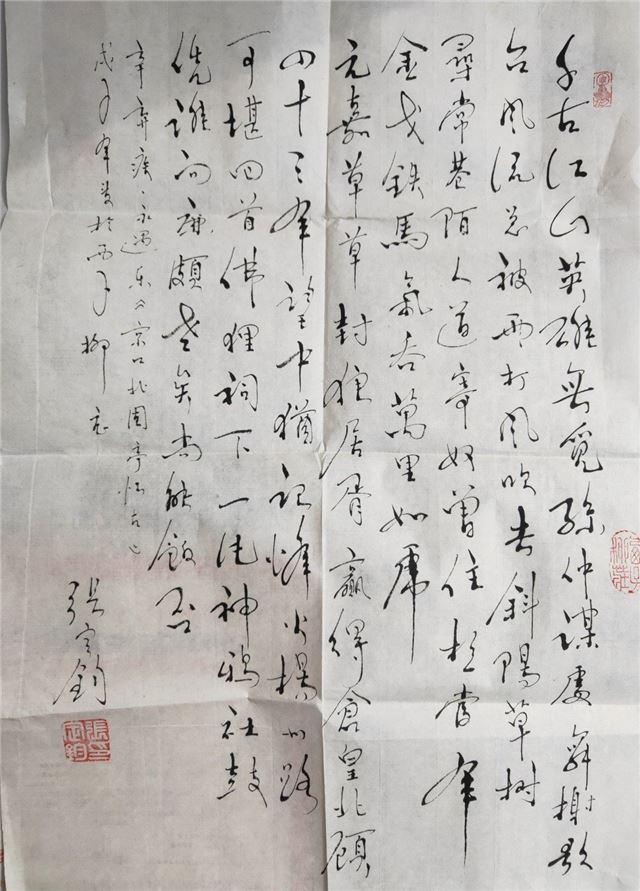 千古江山英雄無覓孫仲謀處舞榭歌
台風流总被雨打风吹去斜陽草树
尋常巷陌人道寄奴曾住想當年
金戈铁馬氣吞萬里如虎
元嘉草草封狼居胥赢得倉皇北顾
四十三年望中猶记烽火揚州路
可堪回首佛狸祠下一片神鴉社鼓
凭誰问廉颇老矣尚能飯否
辛棄疾、永遇乐京口北固亭怀古
戊子年於西子柳
张定鈞